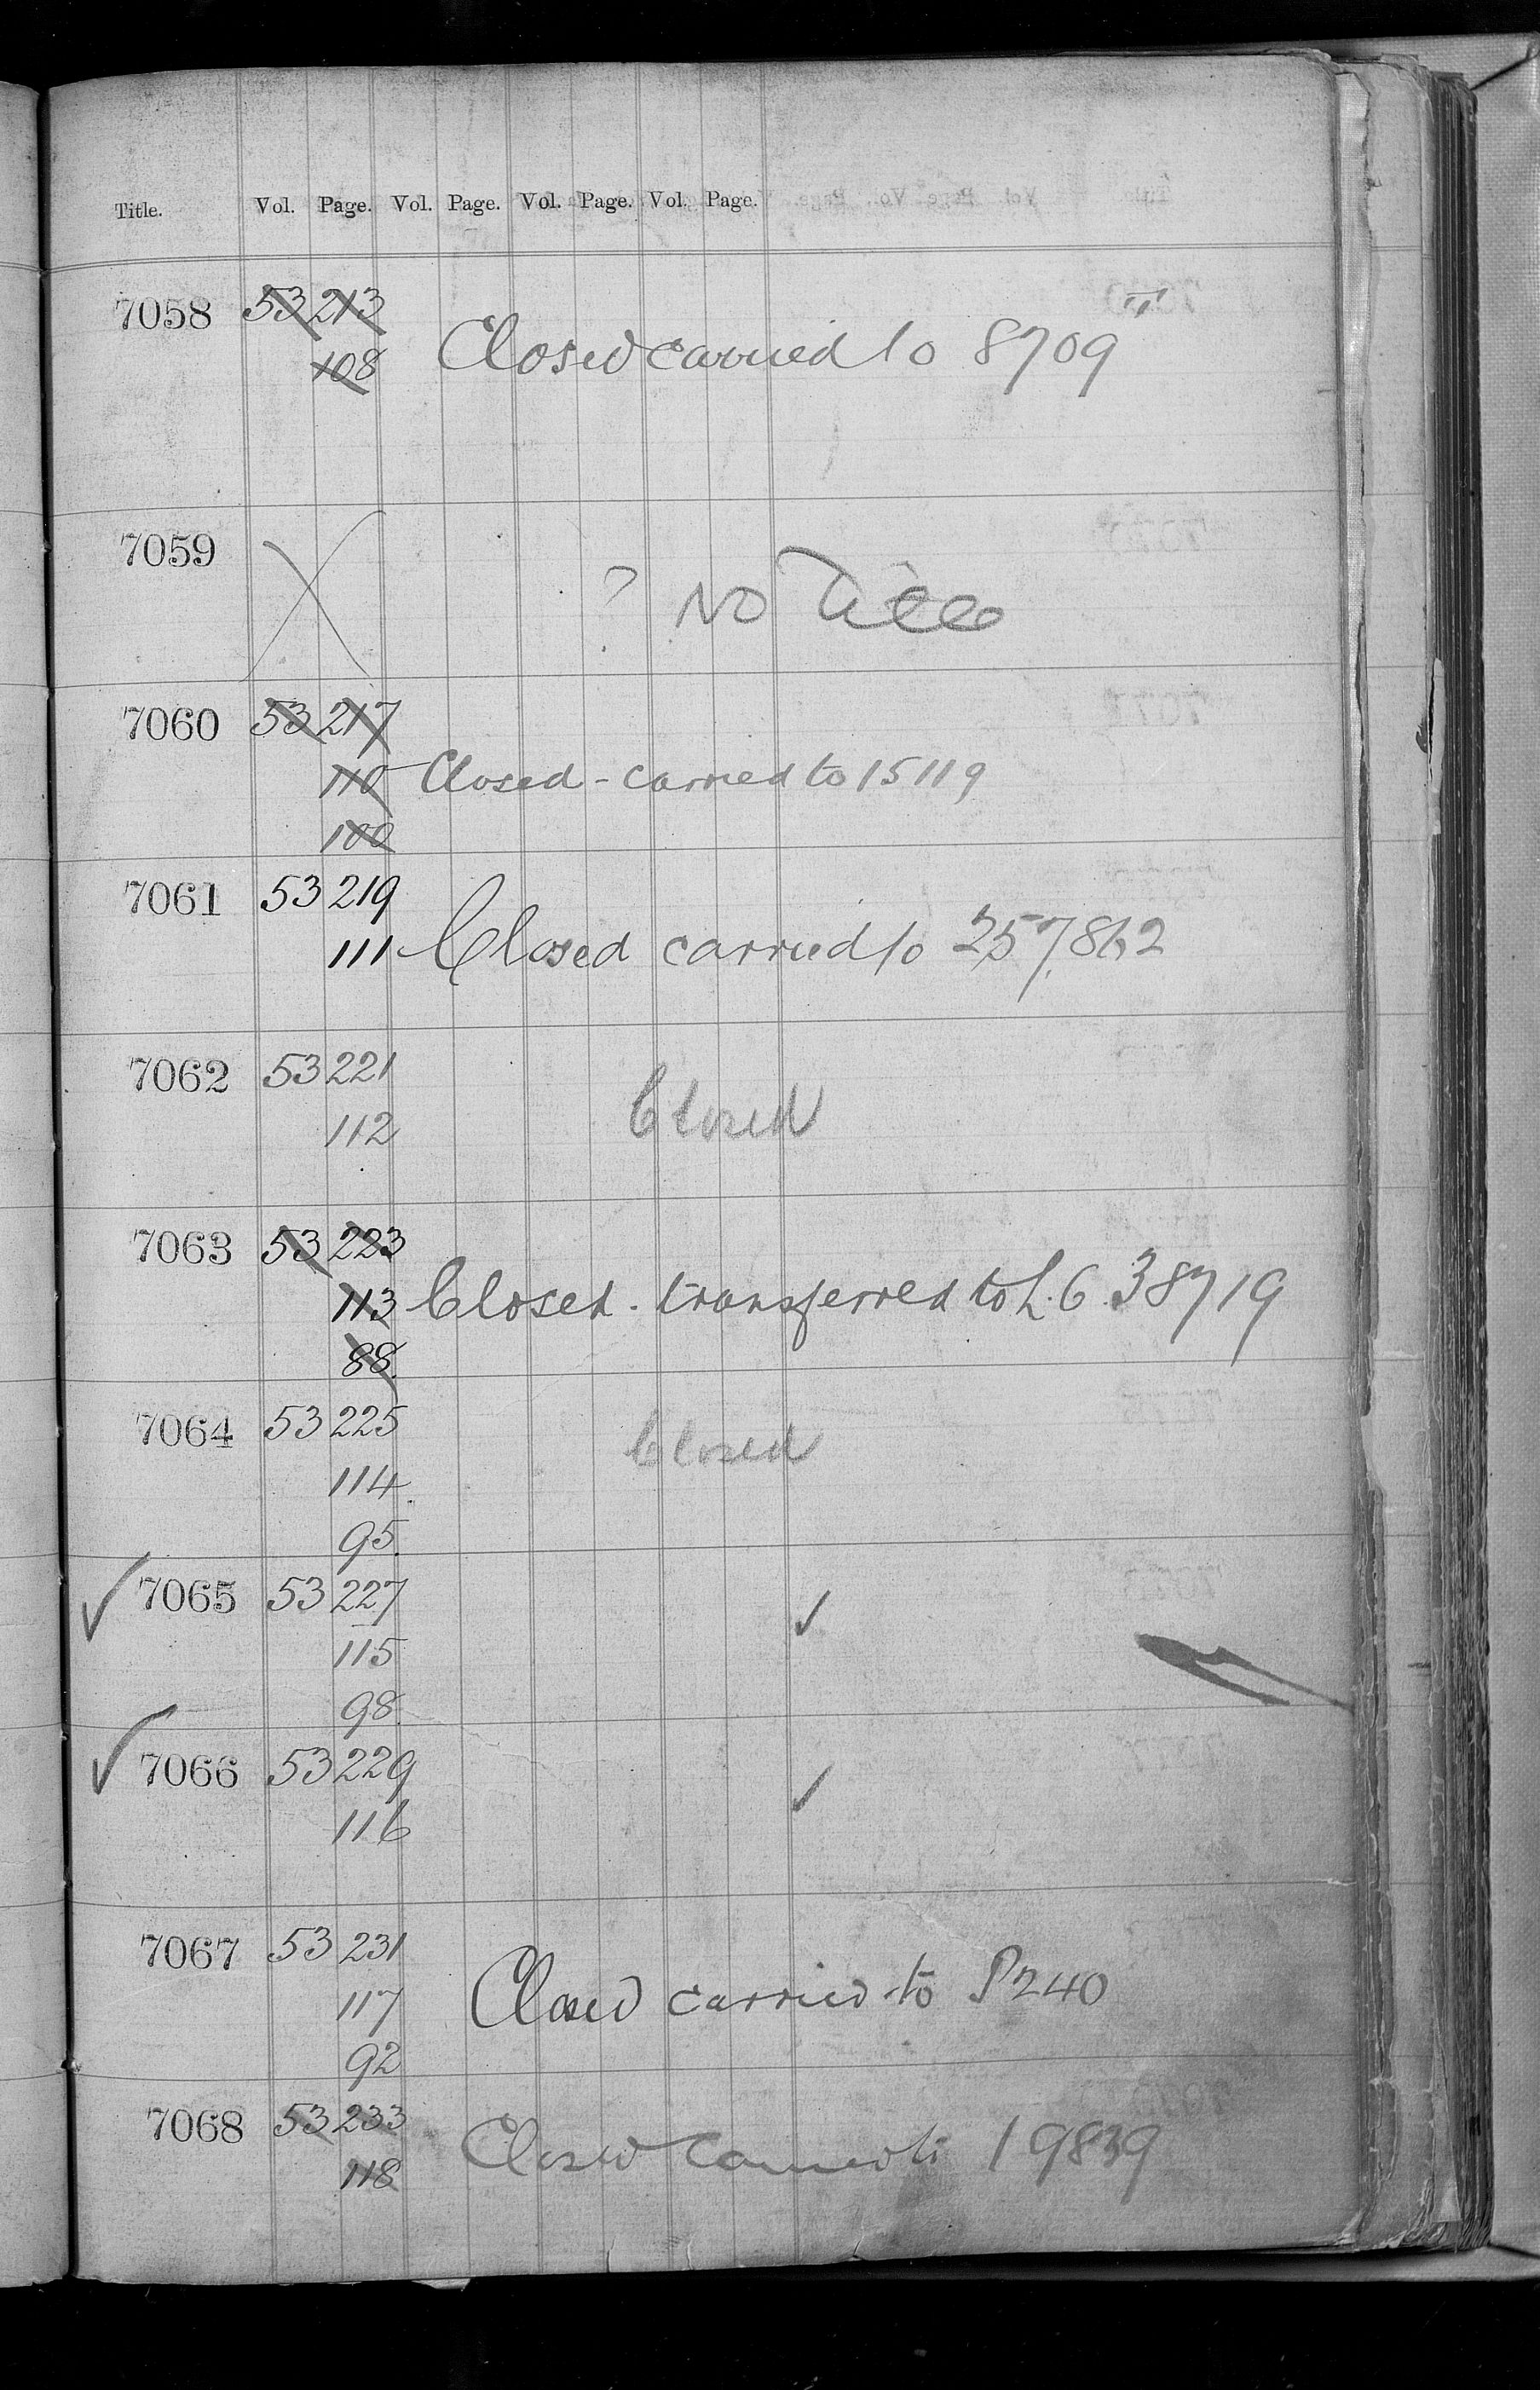 Title. Vol. Page. Vol. Page. Vol. Page. Vol. Page.
7058 53 213
108 Closed carried to 8709
7059 ? No Title
7060 53 217
110 Closed - carried to 15119
100
7061 53 219
111 Closed carried to 257,862
7062 53 221
Closed
112
7063 53 223
113 Closed. transferred to L.G. 38719
88
7064 53 225
Closed
114
95
✓ 7065 53 227 ✓
115
98
✓ 7066 53 229 ✓
116
7067 53 231
117 Closed carried to P240
92
7068 53 233
118 Closed carried to 19839